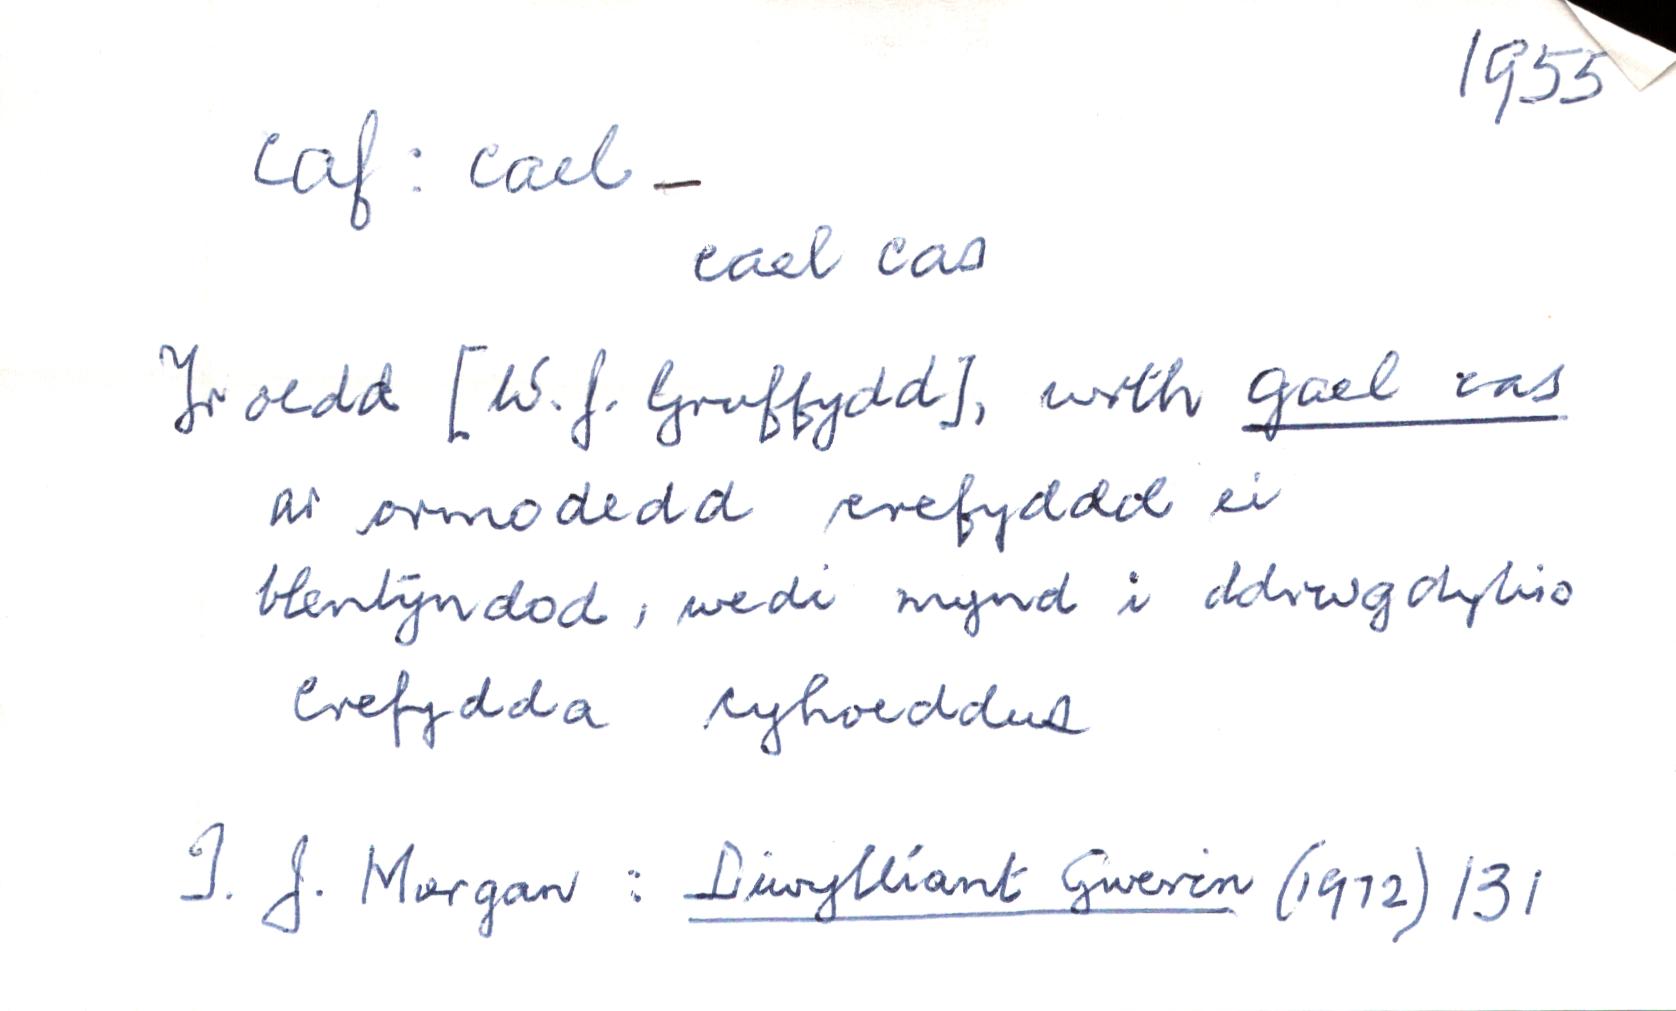 1955
caf: cael –
cael cas
Yr oedd [W. J. Gruffydd], wrth gael cas
ar ormodedd crefyddol ei
blentyndod, wedi mynd i ddrwgdybio
crefydda cyhoeddus
T. J. Morgan: Diwylliant Gwerin (1972) 131